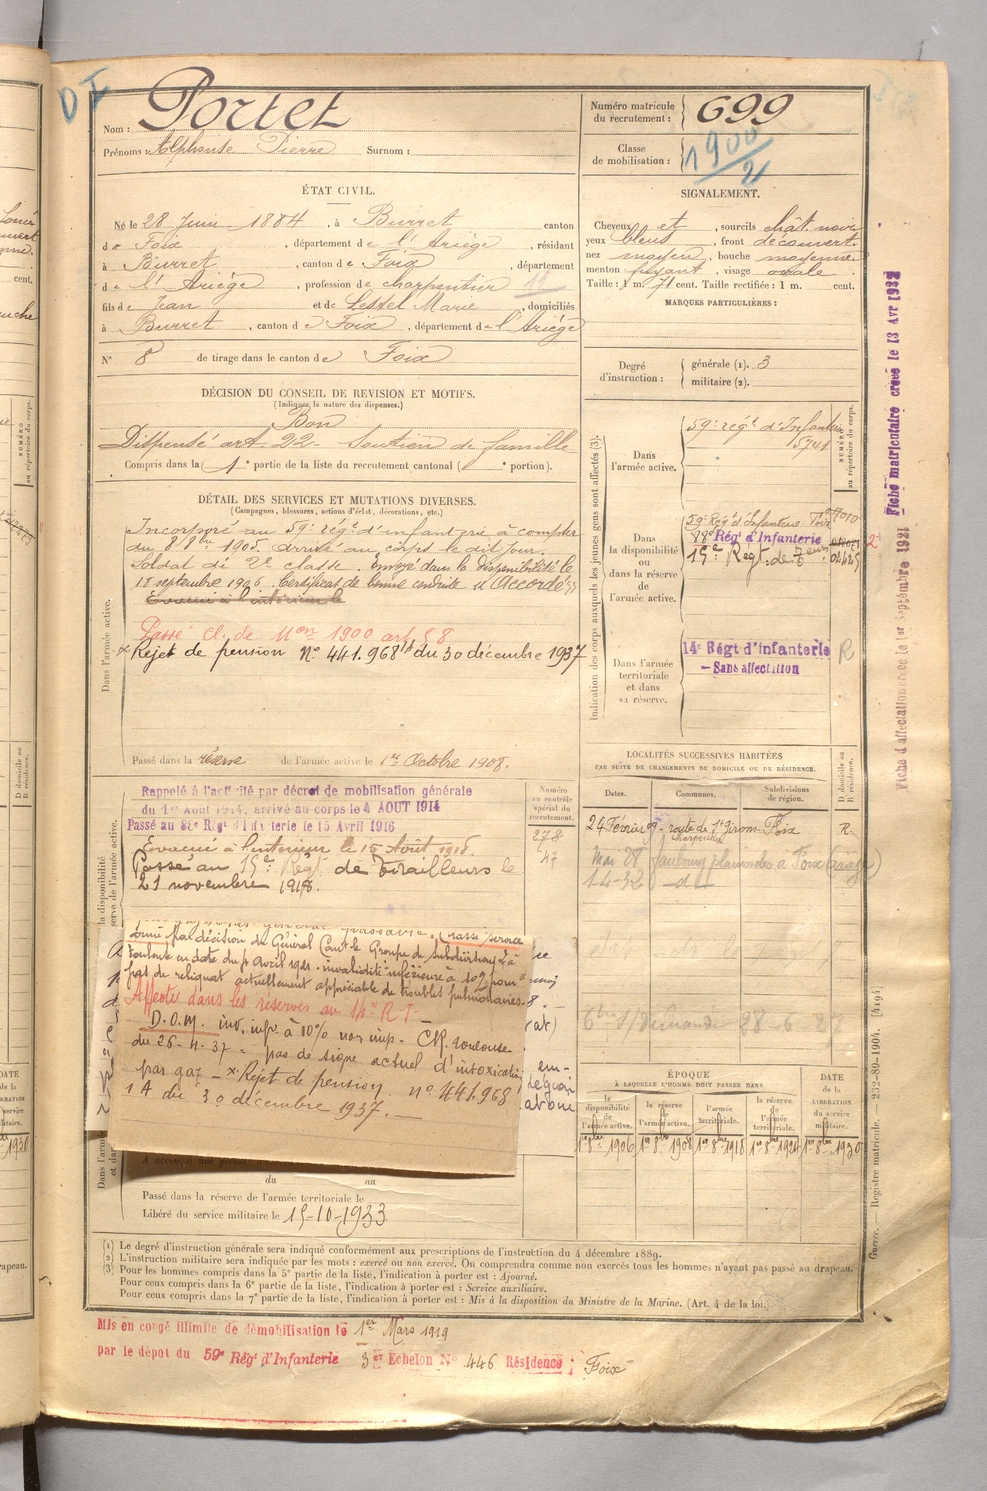 D I
Nom : Portet
Prénoms : Alphonse Pierre Surnom :
Numéro matricule du recrutement : 699
Classe de mobilisation : 1900/2
ÉTAT CIVIL.
Né le 28 Juin 1884, à Burret canton
de Foix, département de l'Ariège, résidant
à Burret, canton de Foix, département
de l'Ariège, profession de charpentier 11
fils de Jean et de Marie, domiciliés
à Burret, canton de Foix, département de l'Ariège
N° 8 de tirage dans le canton de Foix
SIGNALEMENT.
Cheveux et, sourcils chât. noir
yeux bleus, front découvert
nez moyen, bouche moyenne
menton fuyant, visage ovale
Taille : 1 m. 71 cent. Taille rectifiée : 1 m. cent.
MARQUES PARTICULIÈRES :
Degré d'instruction : générale (1). 3
militaire (2).
DÉCISION DU CONSEIL DE REVISION ET MOTIFS.
(Indiquer la nature des dispenses.)
Bon
Dispensé art. 22 Soutien de famille
Compris dans la 1e partie de la liste du recrutement cantonal ( e portion).
DÉTAIL DES SERVICES ET MUTATIONS DIVERSES.
(Campagnes, blessures, actions d'éclat, décorations, etc.)
Dans l'armée active.
Incorporé au 59e régt d'infanterie à compter
du 8 8bre 1905. Arrivé au corps le dit jour.
Soldat de 2e classe. Envoyé dans la disponibilité le
18 septembre 1906. Certificat de bonne conduite "Accordé"
Evacué à l'intérieur le
Passé cl. de Mon 1900 art 58
x Rejet de pension N° 441.968 du 30 décembre 1937
Passé dans la réserve de l'armée active le 1er Octobre 1908.
Indication des corps auxquels les jeunes gens sont affectés (3).
NUMÉRO au répertoire du corps.
Dans l'armée active.
59e régt d'Infanterie
5741
Dans la disponibilité ou dans la réserve de l'armée active.
59e Régt d'Infanterie Foix
88e Régt d'Infanterie
15e Régt de
Dans l'armée territoriale et dans sa réserve.
14e Régt d'infanterie R
— Sans affectation
Fiche matriculaire créée le 13 Avr 1932
Fiche d'affectation créée le 1er Septembre 1931
Rappelé à l'activité par décret de mobilisation générale
du 1er Août 1914, arrivé au corps le 4 AOUT 1914
Passé au 88e Régt d'Infanterie le 15 Avril 1916
Evacué à l'intérieur le 15 Août 1918.
Passé au 15e Régt de Tirailleurs le
21 novembre 1918.
Numéro au contrôle spécial du recrutement.
278
47
LOCALITÉS SUCCESSIVES HABITÉES
PAR SUITE DE CHANGEMENTS DE DOMICILE OU DE RÉSIDENCE.
Dates. Communes. Subdivisions de région. D domicile ou R résidence.
24 Février 09 route de St Girons Foix R.
charpentier
Mai 28 faubourg planissoles à Foix (Ariège)
1-4-32 — d° —
28-6-27
classé service
donné par décision du Général Comt le Groupe de Subdivisions
Toulouse en date du Avril 1921. invalidité inférieure à 10% pour
pas de reliquat actuellement appréciable de troubles pulmonaires.
Affecté dans les réserves au 14e R I
D.O.M. inv. infre à 10% non imp. CR. Toulouse
du 26-4-37 - pas de signe actuel d'intoxication
par gaz — x Rejet de pension n° 441.968
1A du 30 décembre 1937. —
ÉPOQUE
À LAQUELLE L'HOMME DOIT PASSER DANS
la disponibilité de l'armée active. la réserve de l'armée active. l'armée territoriale. la réserve de l'armée territoriale. DATE de la LIBÉRATION du service militaire.
1er 8bre 1906 1er 8bre 1908 1er 8bre 1918 1er 8bre 1924 1er 8bre 1930
du au
Passé dans la réserve de l'armée territoriale le
Libéré du service militaire le 15-10-1933
(1) Le degré d'instruction générale sera indiqué conformément aux prescriptions de l'instruction du 4 décembre 1889.
(2) L'instruction militaire sera indiquée par les mots : exercé ou non exercé. On comprendra comme non exercés tous les hommes n'ayant pas passé au drapeau.
(3) Pour les hommes compris dans la 5e partie de la liste, l'indication à porter est : Ajourné.
Pour ceux compris dans la 6e partie de la liste, l'indication à porter est : Service auxiliaire.
Pour ceux compris dans la 7e partie de la liste, l'indication à porter est : Mis à la disposition du Ministre de la Marine. (Art. 4 de la loi.)
Guerre. — Registre matricule. — 232-89-1904. [4194]
Mis en congé illimité de démobilisation le 1er Mars 1919
par le dépôt du 59e Régt d'Infanterie 3er Echelon N° 446 Résidence : Foix